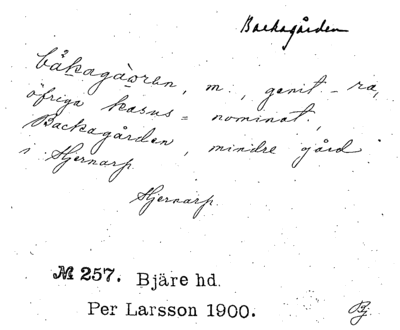 Backagården
båkagàoren, m., genit -ra,
öfriga kasus = nominat,
Backagården, mindre gård
i Hjernarp.
Hjernarp.
№ 257. Bjäre hd.
Per Larsson 1900.
Bj